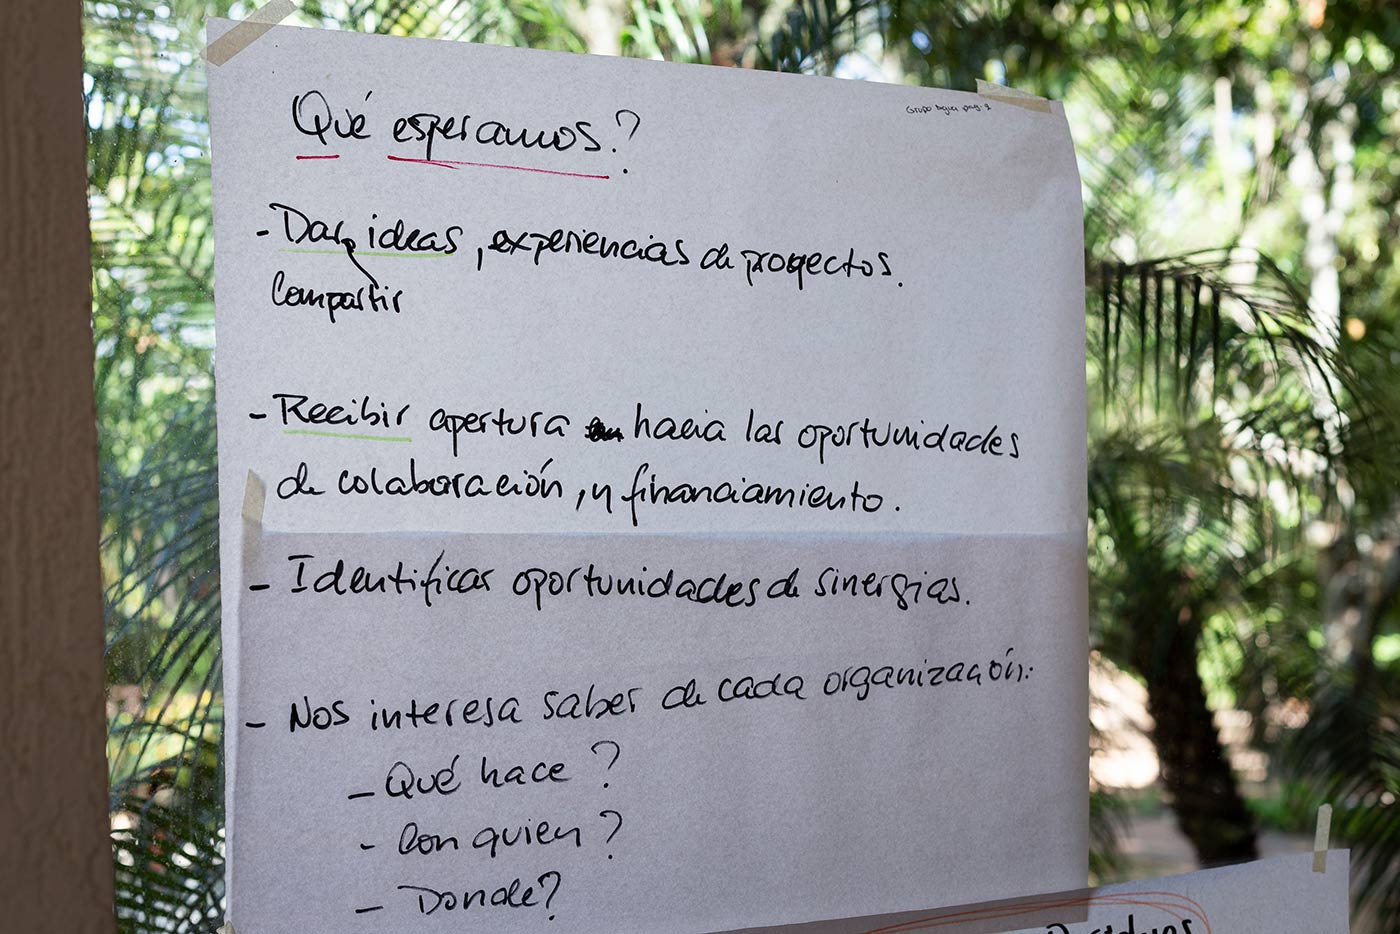 Grupo Agua pag. 1
Qué esperamos.?
- Dar ideas, experiencias de proyectos.
Compartir
- Recibir apertura hacia las oportunidades
de colaboración, y financiamiento.
- Identificar oportunidades de sinergias.
- Nos interesa saber de cada organización:
- Qué hace?
- Con quien?
- Donde?